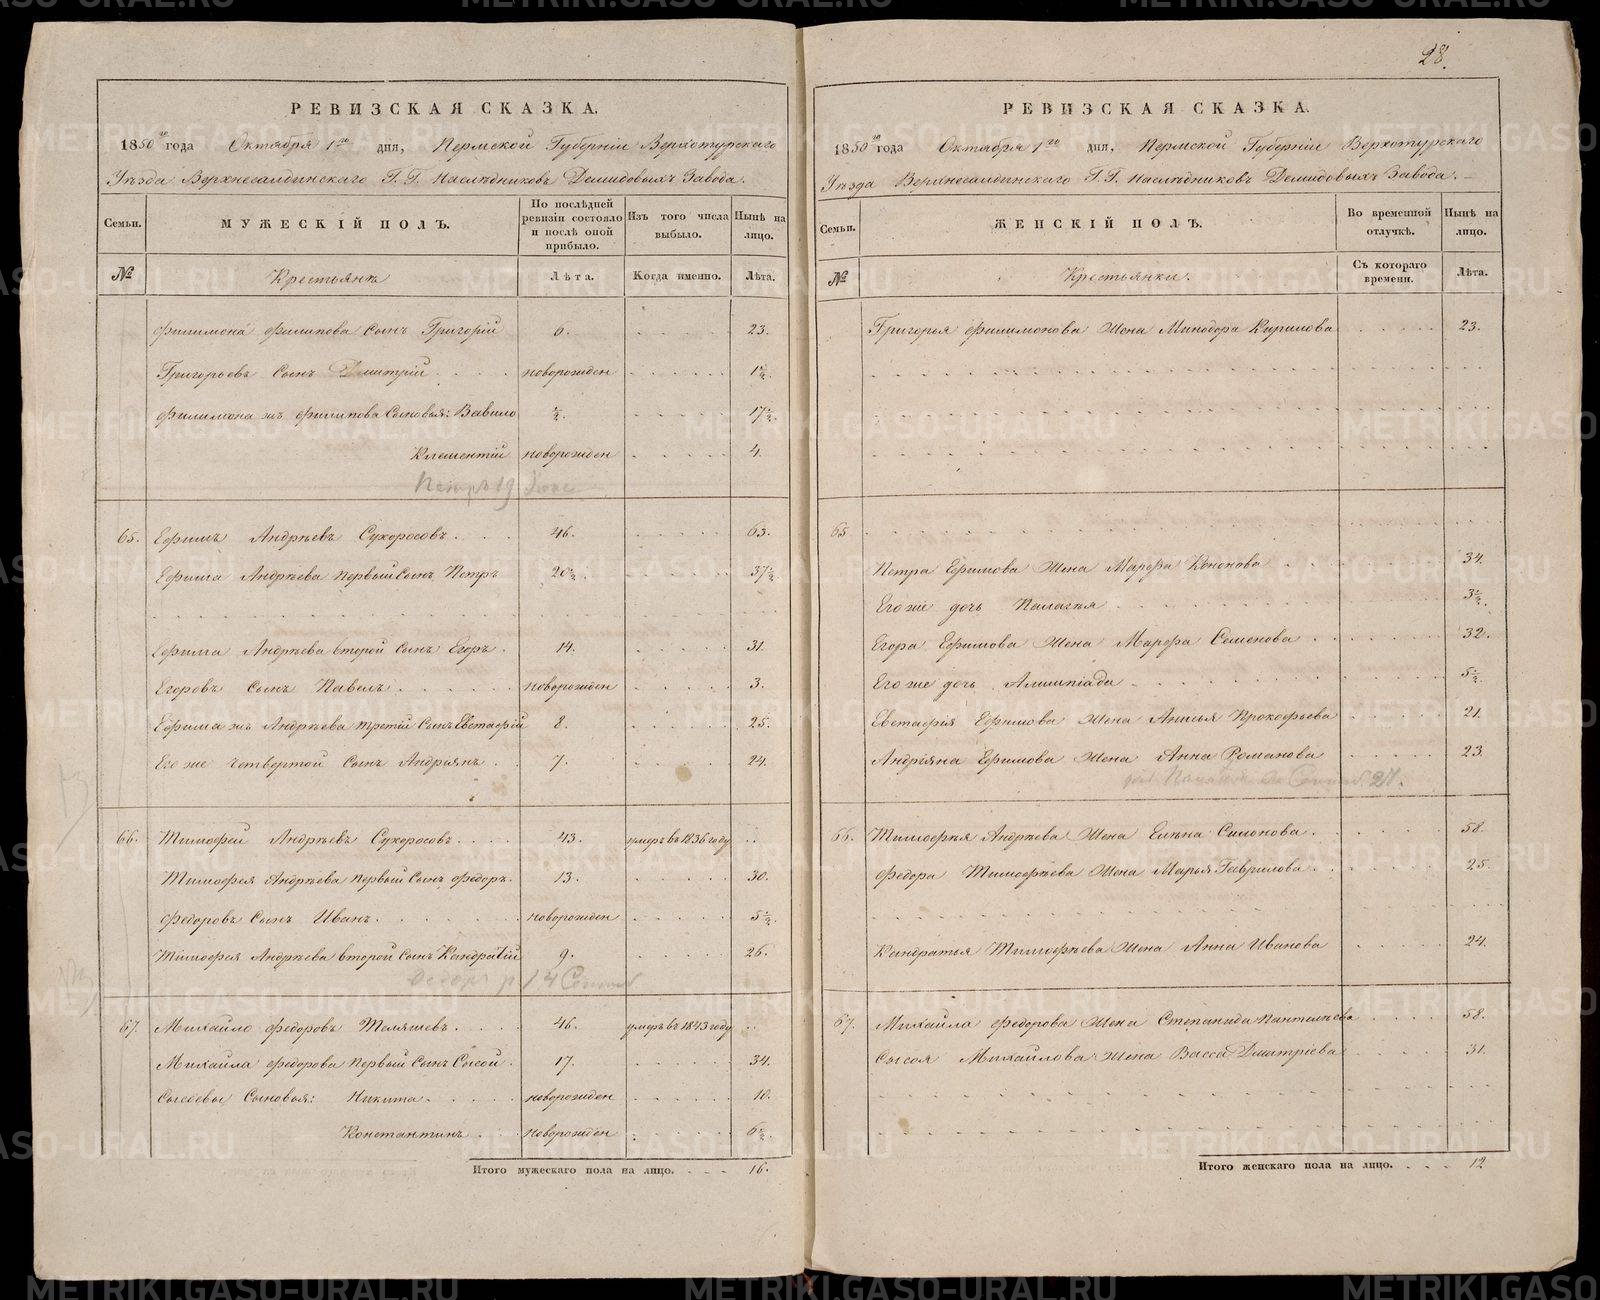 РЕВИЗСКАЯ СКАЗКА.
1850го года Октября 1го дня, Пермской Губерніи Верхотурскаго
Уѣзда Верхнесалдинскаго Г.Г. Наслѣдниковъ Демидовыхъ Завода.
Семьи. МУЖЕСКІЙ ПОЛЪ. По послѣдней ревизіи состояло и послѣ оной прибыло. Изъ того числа выбыло. Нынѣ на лицо.
№ Крестьяне Лѣта. Когда именно. Лѣта.
Филимона Филипова сынъ Григорій 6. 23.
Григорьевъ Сынъ Дмитрій новорожден 1½.
Филимона жъ Филипова Сыновья: Вавило ½. 17½.
Клементій новорожден 4.
Петръ 19
65. Ефимъ Андрѣевъ Сухоросовъ 46. 63.
Ефима Андрѣева первый Сынъ Петръ 20½. 37½.
Ефима Андрѣева второй сынъ Егоръ 14. 31.
Егоровъ Сынъ Павелъ новорожден 3.
Ефима жъ Андрѣева третій Сынъ Евстафій 8. 25.
Его же четвертой Сынъ Андріянъ 7. 24.
66. Тимофей Андрѣевъ Сухоросовъ 43. умеръ въ 1836 году
Тимофея Андрѣева первый Сынъ Федоръ 13. 30.
Федоровъ Сынъ Иванъ новорожден 5½.
Тимофея Андрѣева второй сынъ Кандратій 9. 26.
Федоръ р 14
67. Михайло Федоровъ Теляшевъ 46. умеръ въ 1843 году
Михайла Федорова Первый Сынъ Сысой 17. 34.
Сысоевы Сыновья: Никита новорожден 10.
Константинъ Новорожден 6½.
Итого мужескаго пола на лицо. 16.
28.
РЕВИЗСКАЯ СКАЗКА.
1850го года Октября 1го дня, Пермской Губерніи Верхотурскаго
Уѣзда Верхнесалдинскаго Г.Г. Наслѣдниковъ Демидовыхъ Завода.
Семьи. ЖЕНСКІЙ ПОЛЪ. Во временной отлучкѣ. Нынѣ на лицо.
№ Крестьянки. Съ котораго времени. Лѣта.
Григорья Филимонова Жена Минодора Кирилова 23.
65
Петра Ефимова Жена Марфа Кононова 34.
Его же дочь Палагѣя 3½.
Егора Ефимова Жена Марфа Семенова 32.
Его же дочь Алимпіада 5½.
Евстафія Ефимова Жена Анисья Прокофьева 21.
Андріяна Ефимова Жена Анна Романова 23.
66. Тимофѣя Андрѣева Жена Елѣна Симонова 58.
Федора Тимофѣева Жена Марья Гаврилова 25.
Кандратья Тимофѣева Жена Анна Иванова 24.
67. Михайла Федорова Жена Степанида Пантелѣева 58.
Сысоя Михайлова Жена Васса Дмитріева 31.
Итого женскаго пола на лицо. 12
METRIKI.GASO-URAL.RU